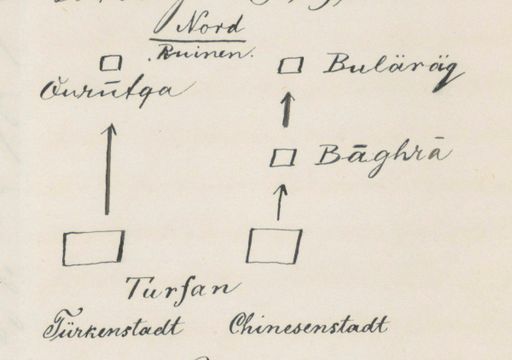 Nord
Ruinen.
Bulāräq
Bāghrā
Turfan
Türkenstadt Chinesenstadt